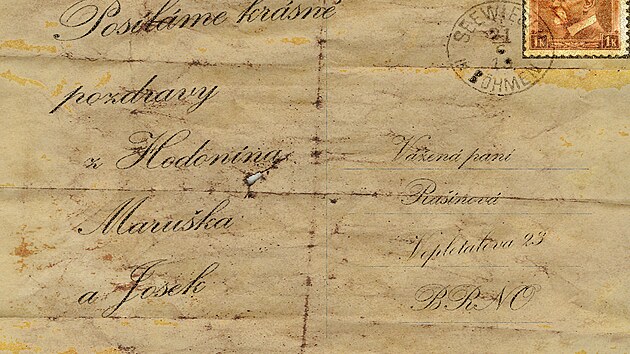 Posíláme krásné
pozdravy
z Hodonína
Maruška
a Josek
Vážená paní
Rašínová
Vepletalova 23
BRNO
1K 1K
BÖHMEN